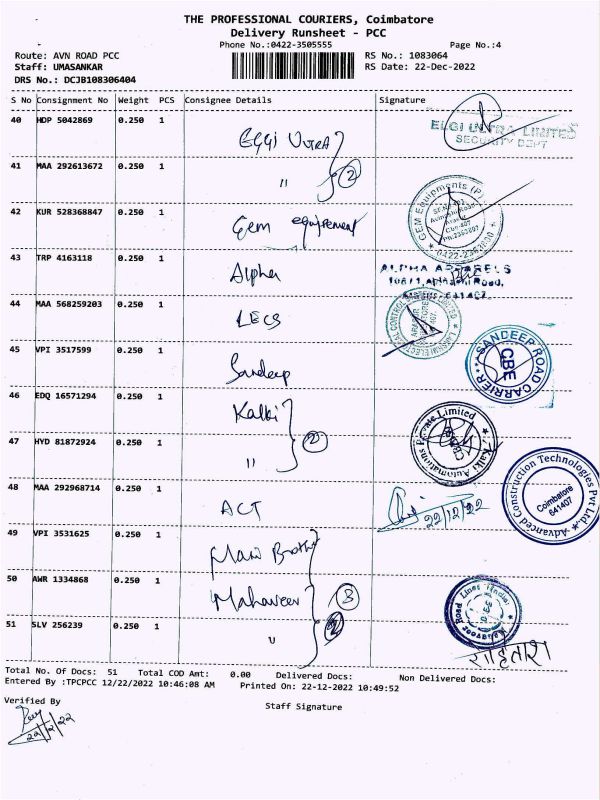 THE PROFESSIONAL COURIERS, Coimbatore
Delivery Runsheet - PCC
Phone No.:0422-3505555 Page No.:4
Route: AVN ROAD PCC RS No.: 1083064
Staff: UMASANKAR RS Date: 22-Dec-2022
DRS No.: DCJB108306404
S No Consignment No Weight PCS Consignee Details Signature
40 HDP 5042869 0.250 1
ELGI ULTRA LIMITED
SECURITY DEPT
41 MAA 292613672 0.250 1
" 2
42 KUR 528368847 0.250 1
Gem equipement
GEM Equipments (P)
0422-2363800
43 TRP 4163118 0.250 1
Alpha
ALPHA APPARELS
44 MAA 568259203 0.250 1
LECS
45 VPI 3517599 0.250 1
Sandeep
SANDEEP ROAD CARRIER
CBE
46 EDQ 16571294 0.250 1
Kalki
Kalki Automations Private Limited
47 HYD 81872924 0.250 1
" 2
48 MAA 292968714 0.250 1
ACT
22/12/22
Advanced Construction Technologies Pvt Ltd.
Coimbatore
641407
49 VPI 3531625 0.250 1
50 AWR 1334868 0.250 1
Mahaveer 3
Road Lines (India)
51 SLV 256239 0.250 1
" 2
Total No. Of Docs: 51 Total COD Amt: 0.00 Delivered Docs: Non Delivered Docs:
Entered By :TPCPCC 12/22/2022 10:46:08 AM Printed On: 22-12-2022 10:49:52
Verified By Staff Signature
22/12/22